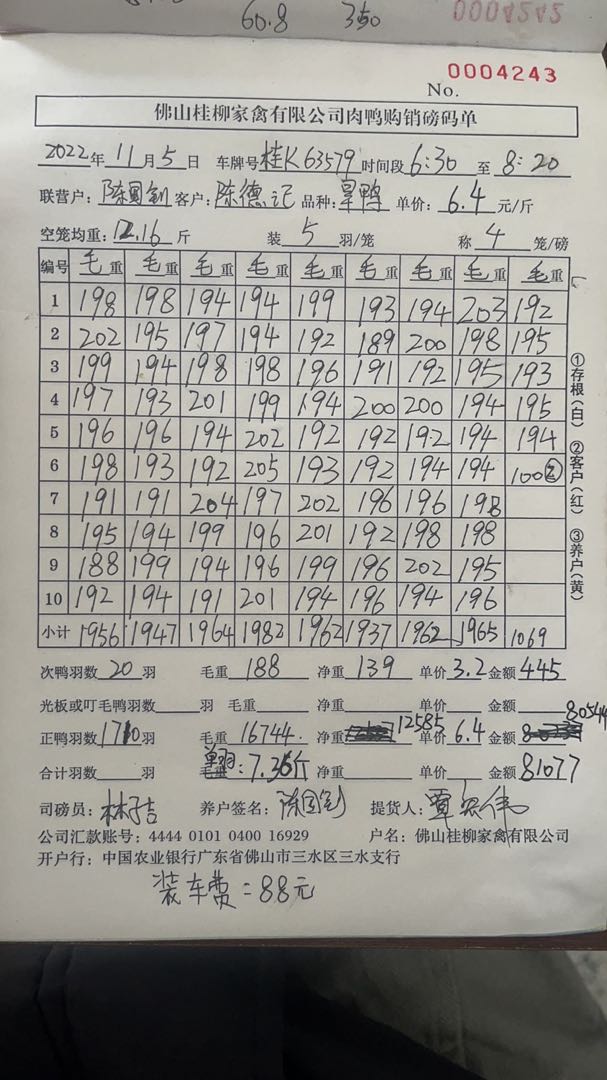 60.8 350 0004242
0004243
No.
佛山桂柳家禽有限公司肉鸭购销磅码单
2022年11月5日 车牌号桂K63579时间段6:30至8:20
联营户:陈国钊 客户:陈德记 品种:旱鸭 单价:6.4元/斤
空笼均重:12.16斤 装5羽/笼 称4笼/磅
编号 毛重 毛重 毛重 毛重 毛重 毛重 毛重 毛重 毛重
1 198 198 194 194 199 193 194 203 192
2 202 195 197 194 192 189 200 198 195
3 199 194 198 198 196 191 192 195 193
4 197 193 201 199 194 200 200 194 195
5 196 196 194 202 192 192 192 194 194
6 198 193 192 205 193 192 194 194 100②
7 191 191 204 197 202 196 196 198
8 195 194 199 196 201 192 198 198
9 188 199 194 196 199 196 202 195
10 192 194 191 201 194 196 194 196
小计 1956 1947 1964 1982 1962 1937 1962 1965 1069
次鸭羽数20羽 毛重188 净重139 单价3.2金额445
光板或叮毛鸭羽数 羽 毛重 净重 单价 金额
80544
正鸭羽数1710羽 毛重16744 净重12585 单价6.4金额
合计羽数 羽 单羽:7.36斤 净重 单价 金额81077
司磅员:林子吉 养户签名:陈国钊 提货人:
公司汇款账号:4444 0101 0400 16929 户名:佛山桂柳家禽有限公司
开户行:中国农业银行广东省佛山市三水区三水支行
装车费=88元
①存根(白) ②客户(红) ③养户(黄)